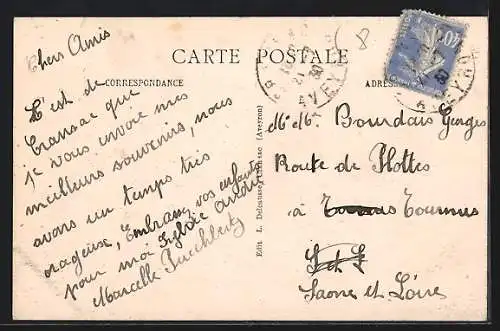 CARTE POSTALE
CORRESPONDANCE
Chers Amis
C'est de
Cransac que
je vous envoie mes
meilleurs souvenirs, nous
avons un temps très
orageux, Embrassez vos enfants
pour moi Sylvie
Marcelle
Edit. L. (Aveyron)
40c
AVEYRON
8
M. Mr. Bourdais Georges
Route de Plottes
à Tournus Tournus
S et L
Saone et Loire